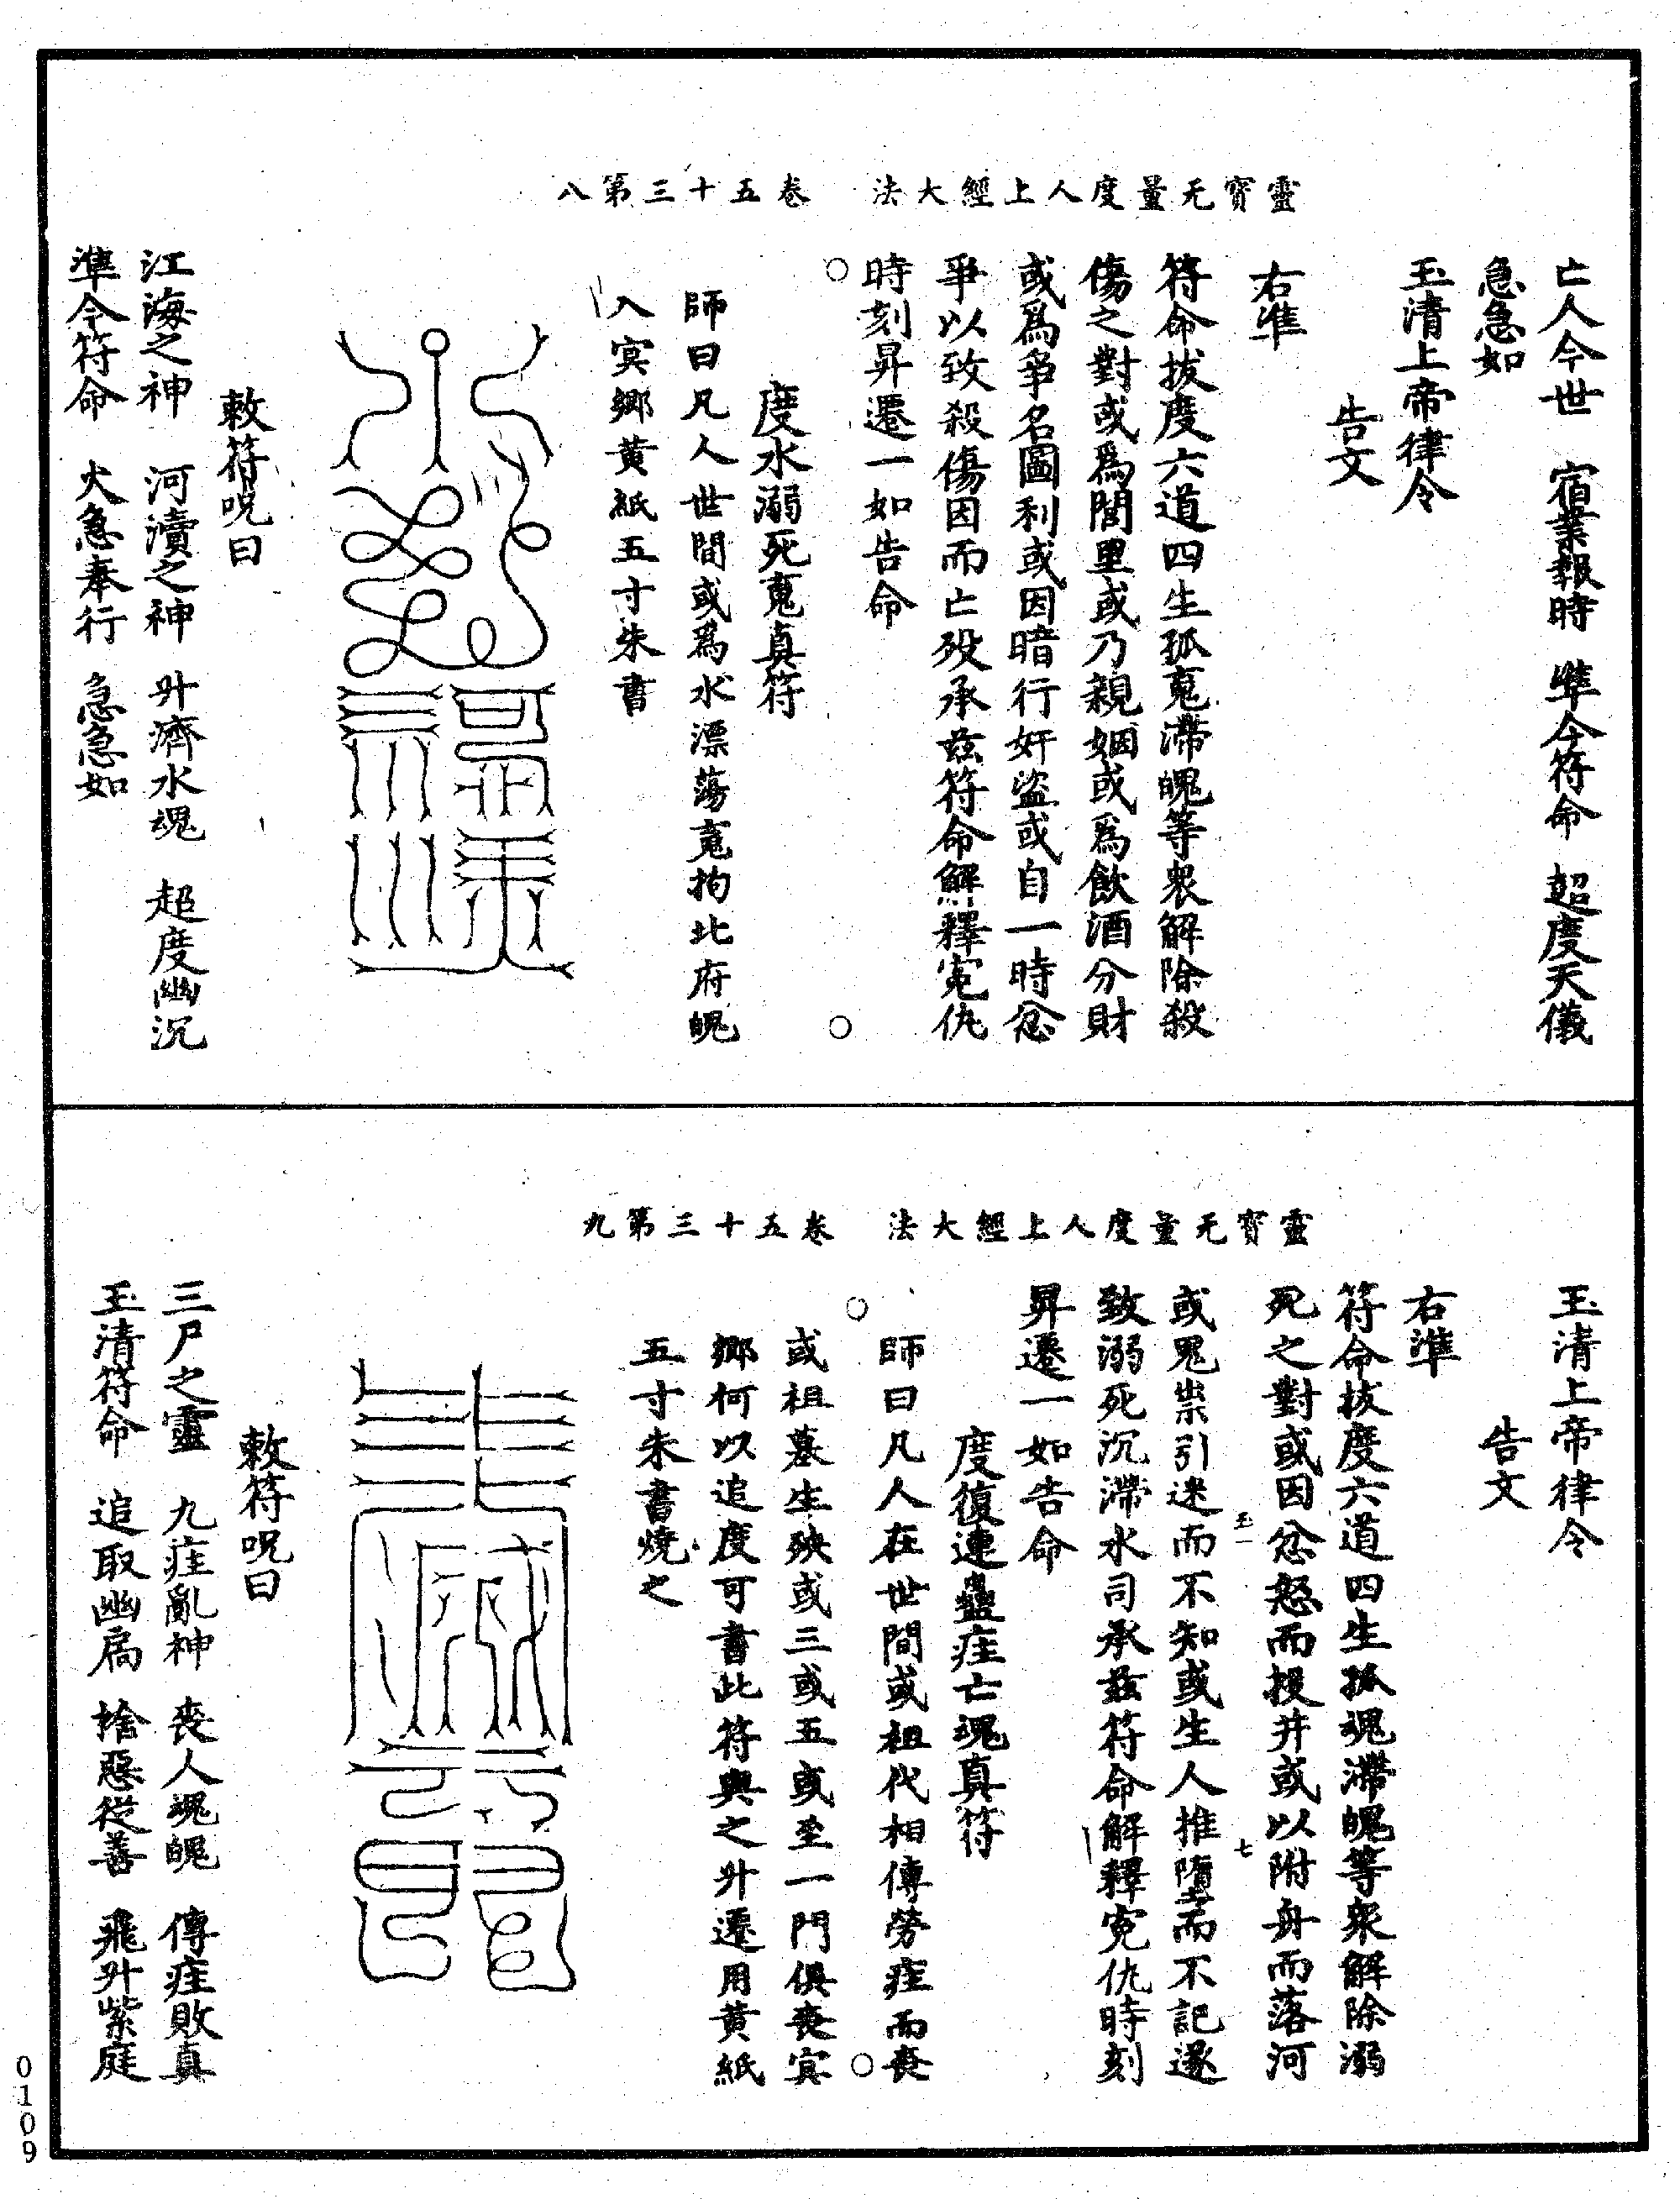 靈寶无量度人上經大法　卷五十三第八
亡人今世　宿業報時　準今符命　超度天儀
急急如
玉清上帝律令
告文
右準
符命拔度六道四生孤䰟滯魄等衆解除殺
傷之對或爲閭里或乃親姻或爲飲酒分財
或爲爭名圖利或因暗行奸盜或自一時忿
爭以致殺傷因而亡歿承兹符命解釋寃仇
時刻昇遷一如告命
度水溺死䰟真符
師曰凡人世間或爲水漂蕩䰟拘北府魄
入冥鄉黄紙五寸朱書
敕符呪曰
江海之神　河瀆之神　升濟水魂　超度幽沉
準令符命　火急奉行　急急如
靈寶无量度人上經大法　卷五十三第九
玉清上帝律令
告文
右準
符命拔度六道四生孤魂滯魄等衆解除溺
死之對或因忿怒而投井或以附舟而落河
或鬼祟引迷而不知或生人推墮而不記遂
致溺死沉滯水司承兹符命解釋寃仇時刻
昇遷一如告命
度復連蠱疰亡魂真符
師曰凡人在世間或祖代相傳勞疰而喪
或祖墓生殃或三或五或至一門俱喪冥
鄉何以追度可書此符與之升遷用黄紙
五寸朱書燒之
敕符呪曰
三尸之靈　九疰亂神　喪人魂魄　傳疰敗真
玉清符命　追取幽扃　捨惡從善　飛升紫庭
0109